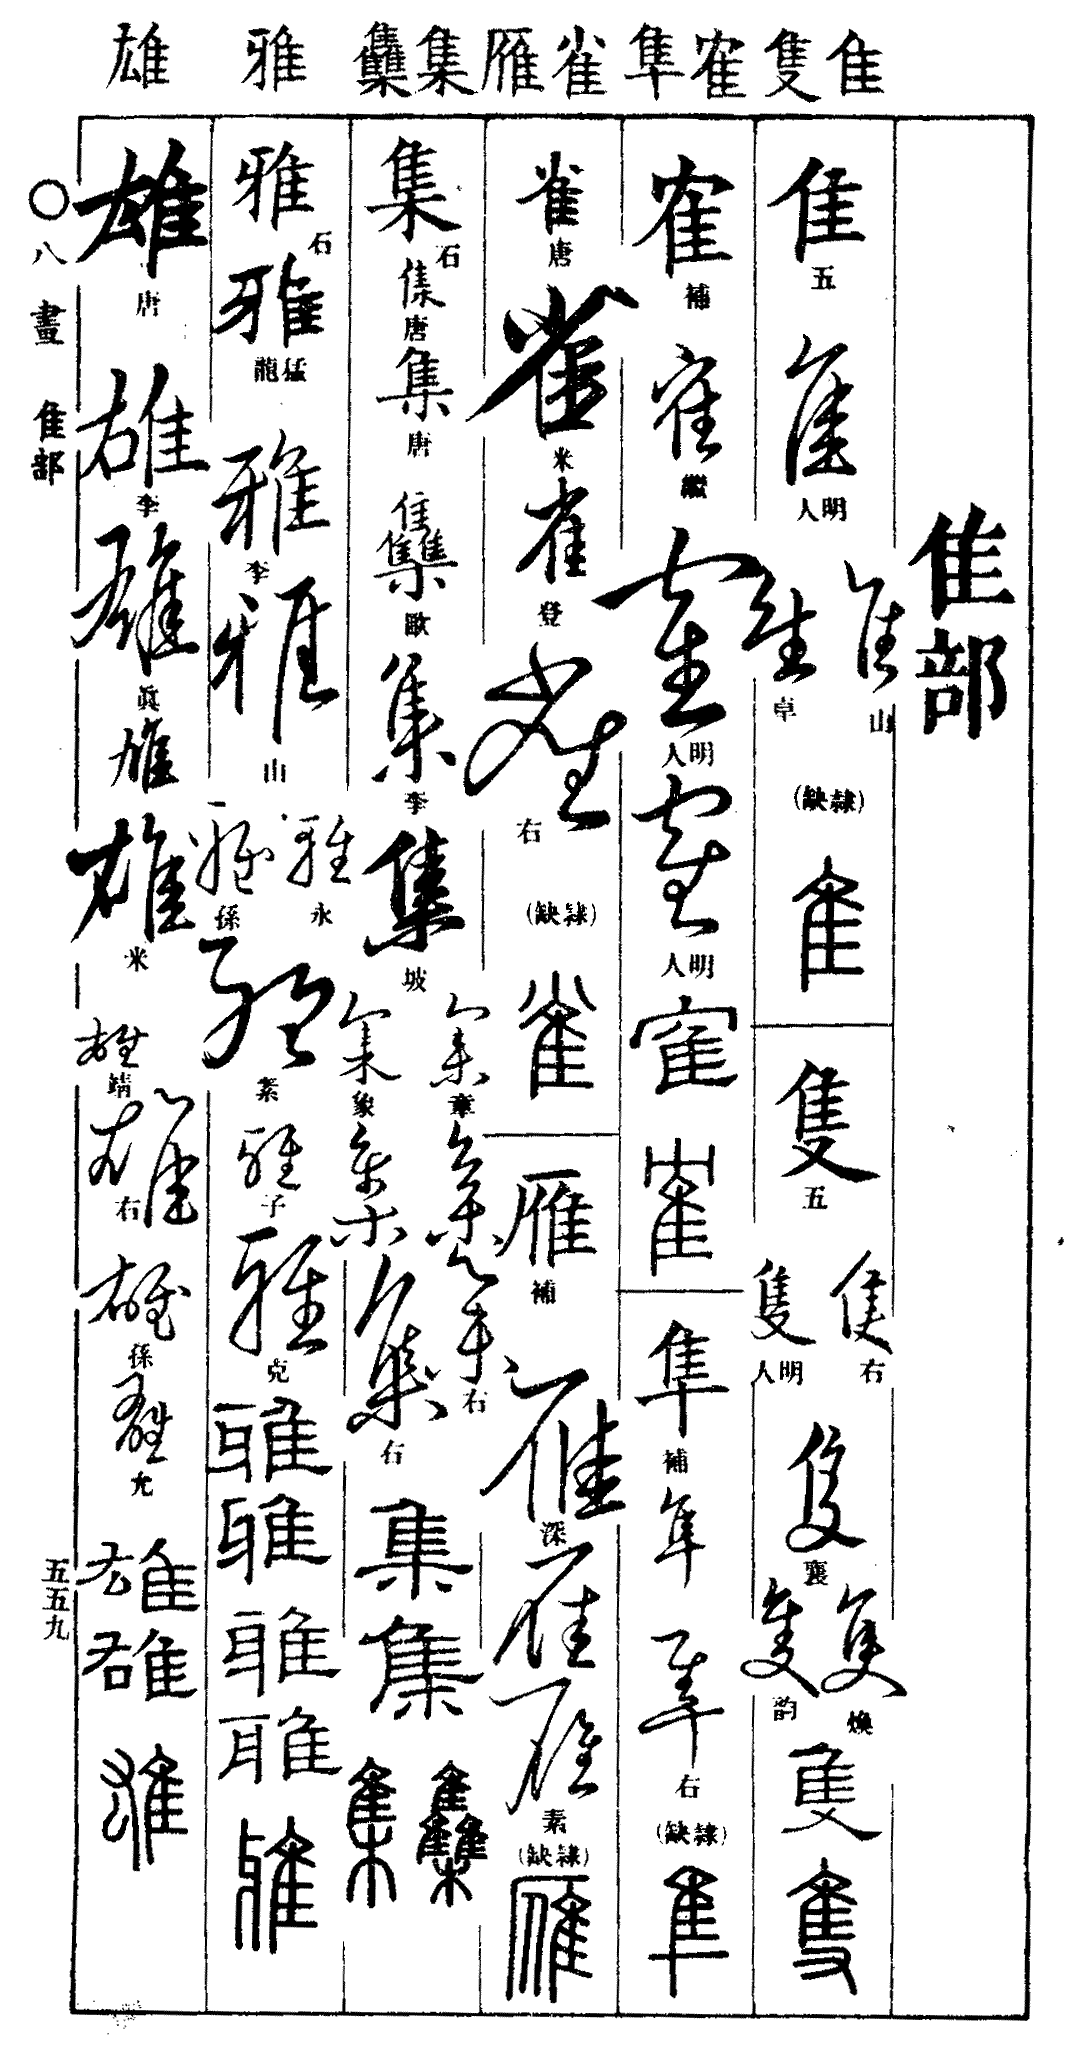 隹 隻 寉 隼 雀 雁 集 雧 雅 雄
隹部
隹 五
隹 明人
隹 山
隹 卓
(隸缺)
隹
隻 五
隻 右
隻 明人
隻 襄
隻 煥
隻 韵
隻
隻
寉 補
寉 繼
寉 明人
寉 明人
寉
寉
隼 補
隼
隼 右
(隸缺)
隼
雀 唐
雀 米
雀 登
雀 右
(隸缺)
雀
雁 補
雁 深
雁
雁 素
(隸缺)
雁
集 石
集 唐
集 唐
雧 歐
集 李
集 坡
集 章
集 象
集
集
集 右
集 右
集
集
雧
集
雅 石
雅 猛龍
雅 李
雅 山
雅 永
雅 孫
雅 素
雅 子
雅 克
雅
雅
雅
雅
雅
雄 唐
雄 李
雄 眞
雄
雄 米
雄 靖
雄 右
雄 孫
雄 允
雄
雄
雄
〇八畫 隹部
五五九